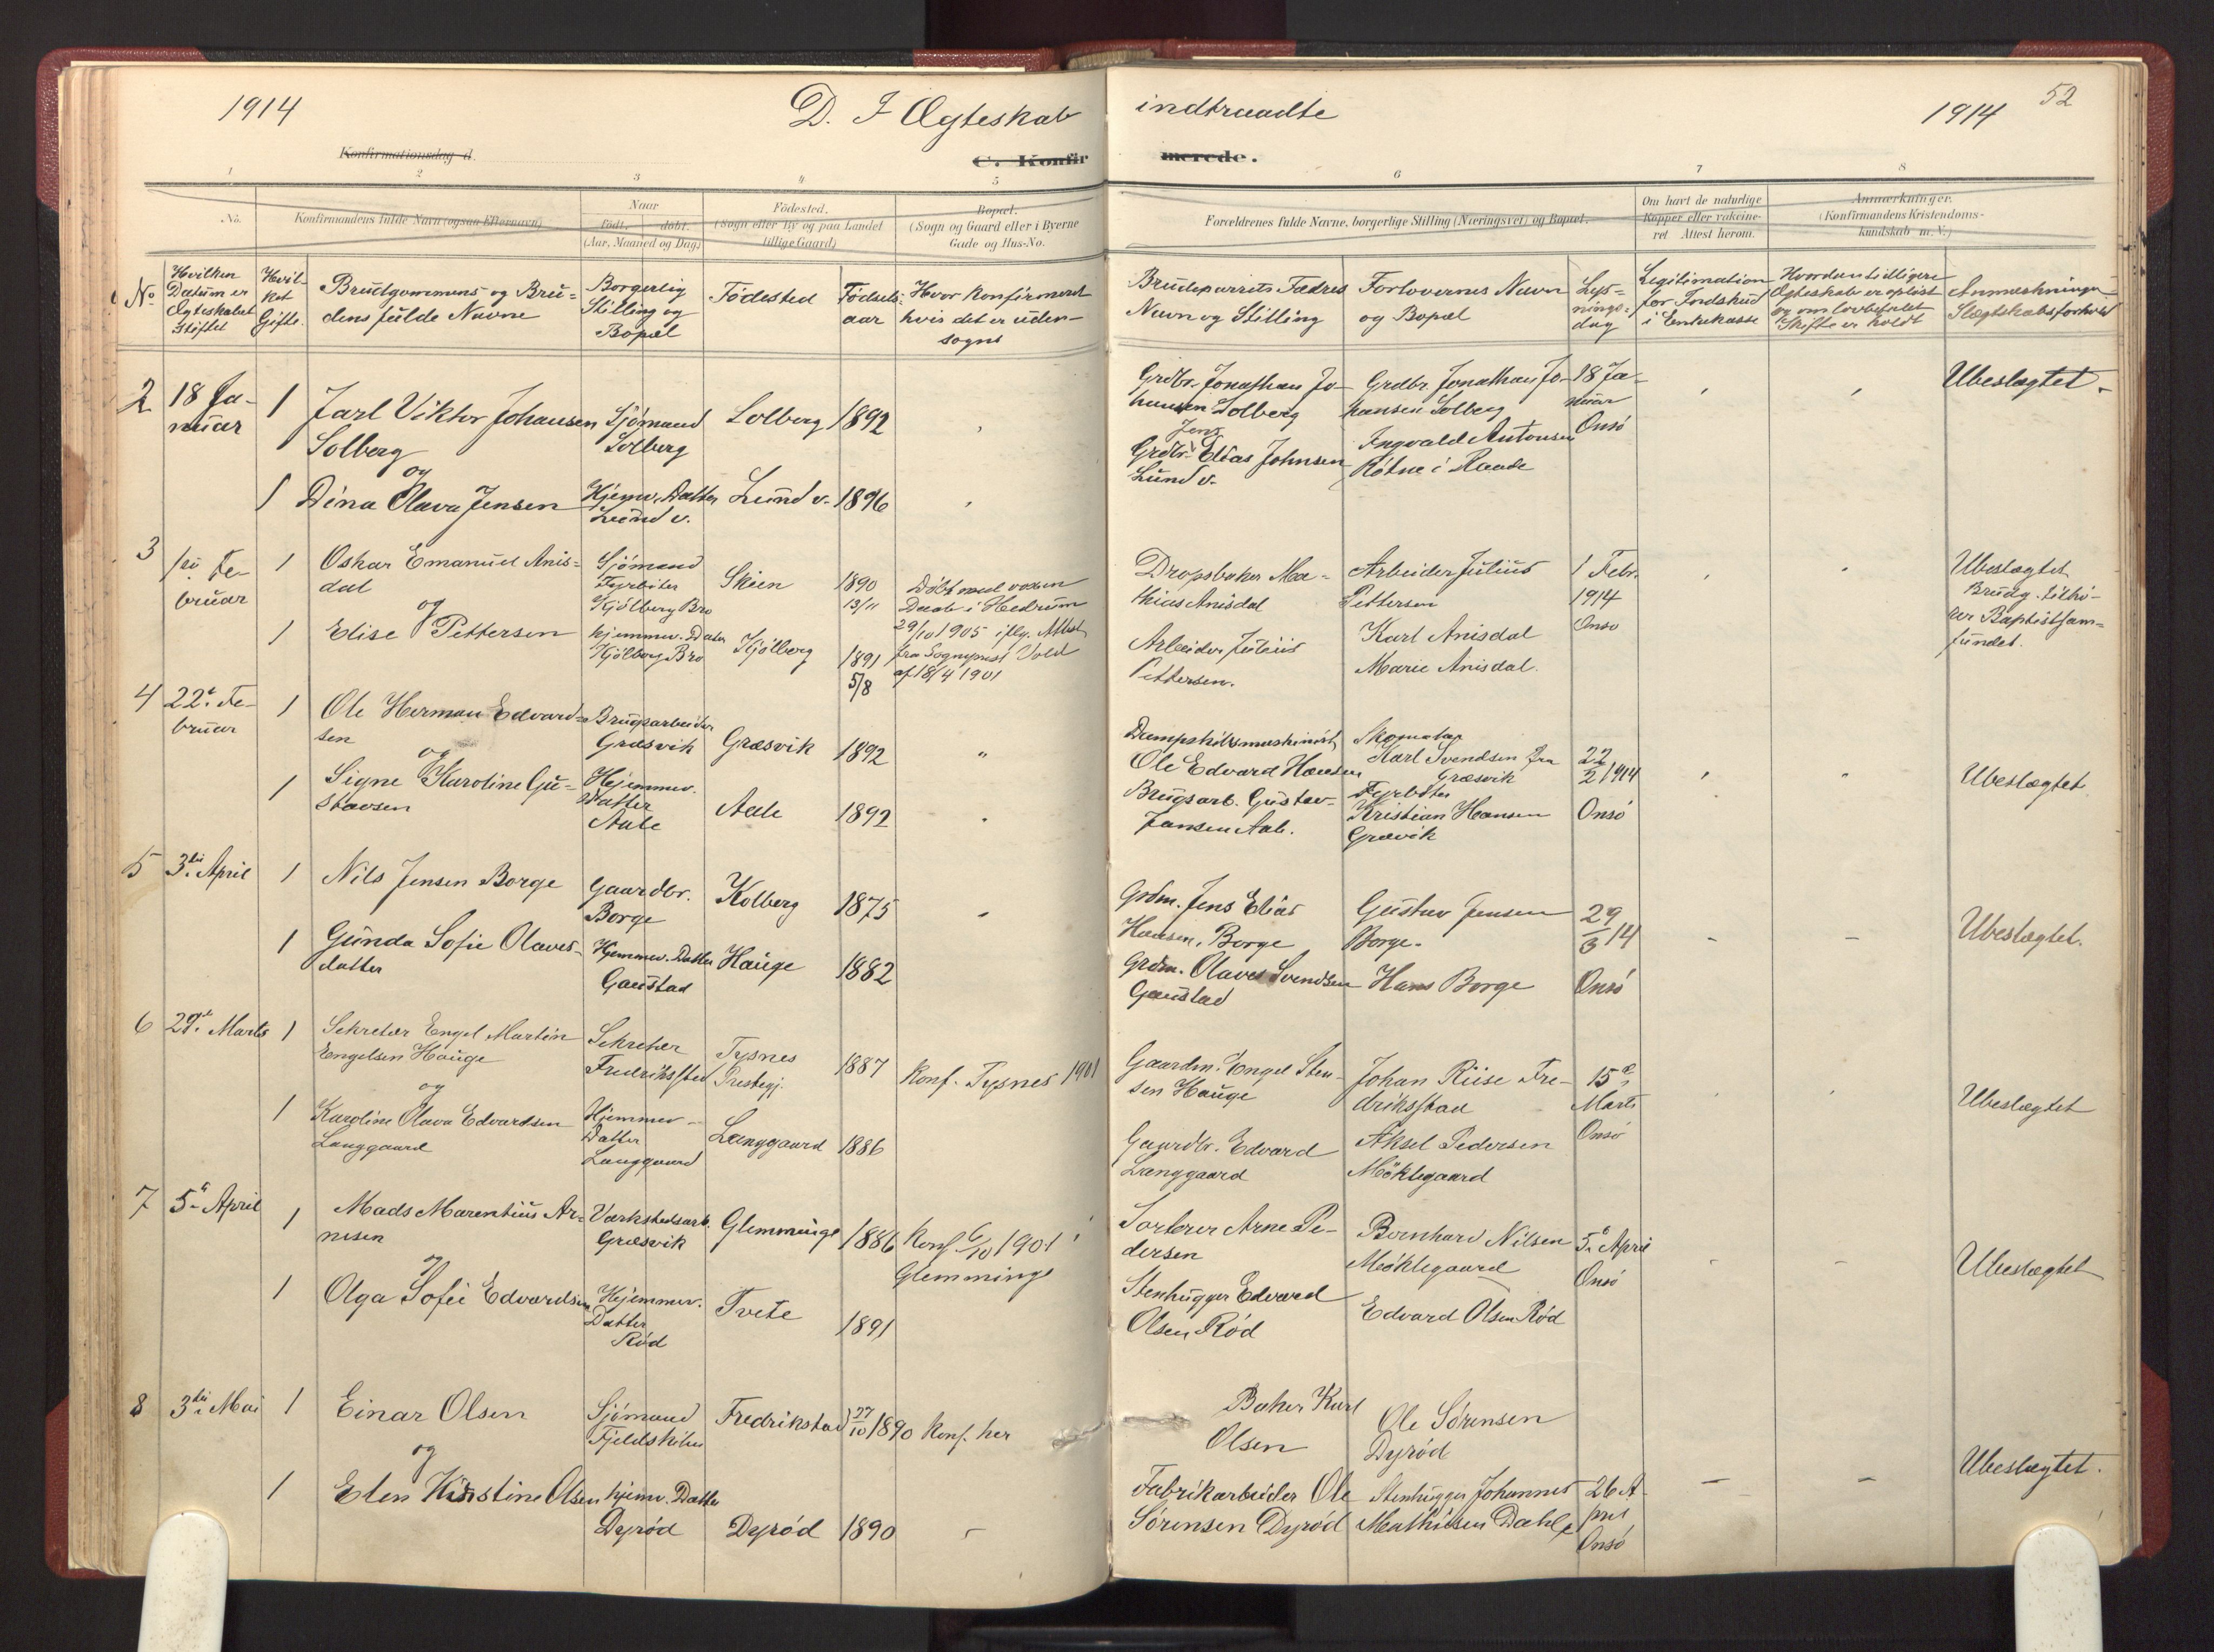 1914
D. I Ægteskab indtraadte
1914
52
Konfirmationsdag d.
C. Konfirmerede.
1 2 3 4 5 6 7 8
No.
Konfirmandens fulde Navn (ogsaa Efternavn)
Naar
født. døbt.
(Aar, Maaned og Dag)
Födested.
(Sogn eller By og paa Landet
tillige Gaard)
Bopæl.
(Sogn og Gaard eller i Byerne
Gade og Hus-No.
Forældrenes fulde Navne, borgerlige Stilling (Næringsvei) og Bopæl.
Om havt de naturlige
Kopper eller vakcine-
ret Attest herom.
Anmærkninger.
(Konfirmandens Kristendoms-
kundskab m. V.)
No
Hvilken
Datum er
Ægteskabet
stiftet
Hvil-
ket
Gifte.
Brudgommens og Bru-
dens fulde Navne
Borgerlig
Stilling og
Bopæl
Födested
Födsels-
aar
Hvor konfirmeret
hvis det er uden-
sogns
Brudeparrets Fædres
Navn og Stilling
Forlovernes Navn
og Bopæl
Lys-
nings-
dag
Legitimation
for Indskud
i Enkekasse
Hvordan tidligere
Ægteskab er opløst
og om lovbefalet
Skifte er holdt
Anmærkninger
Slægtskabsforhold
2
18 Ja-
nuar
1
Jarl Viktor Johansen
Solberg
og
Sjömand
Solberg
Solberg
1892
Grdbr. Jonathan Jo-
hansen Solberg
Grdbr. Jonathan Jo-
hansen Solberg
18 Ja-
nuar
Onsö
Ubeslægtet.
1
Dina Olava Jensen
Hjemv. Datter
Lund v.
Lund v.
1896
Jens
Grdbr. Elias Johnsen
Lund v.
Ingvald Antonsen
Rötne i Raade
3
1ste Fe-
bruar
1
Oskar Emanuel Anis-
dal
og
Sjömand
Fyrböter
Kjölberg Bro
Skien
1890
13/11
Döbt med voxen
Daab i Hedrum
29/10 1905 iflg. Attest
fra Sogneprest Told
af 18/4 1901
Dropsbaker Ma-
thias Anisdal
Arbeider Julius
Pettersen
1 Febr.
1914
Onsö
Ubeslægtet
Brudg. tilhö-
rer Baptistsam-
fundet.
1
Elise Pettersen
hjemmev. Datter
Kjölberg Bro
Kjölberg
1891
5/8
Arbeider Julius
Pettersen.
Karl Anisdal
Marie Anisdal.
4
22de Fe-
bruar
1
Ole Herman Edvard-
sen
og
Brugsarbeider
Græsvik
Græsvik
1892
"
Dampskibsmaskinist
Ole Edvard Hansen
Skomaker
Karl Svendsen fra
Græsvik
22
2 1914
Onsö
Ubeslægtet
1
Signe Karoline Gu-
stavsen
Hjemmev.
Datter
Aale
Aale
1892
Brugsarb. Gustav
Jansen Aale.
Fyrböter
Kristian Hansen
Græsvik
5
3die April
1
Nils Jensen Borge
Gaardbr.
Borge
Kolberg
1875
"
Grdm. Jens Elias
Hansen, Borge
Gustav Jensen
Borge.
29
3 14
Onsö
Ubeslægtet.
1
Gunda Sofie Olaves-
datter
Hjemmev. Datter
Gaustad
Hauge
1882
Grdm. Olaves Svendsen
Gaustad
Hans Borge
6
29de Marts
1
Sekretær Engel Martin
Engelsen Hauge
og
Sekretær
Fredriksstad
Tysnes
Prestegj.
1887
Konf. Tysnes 1901
Gaardm. Engel Sten-
sen Hauge
Johan Riise Fre-
driksstad
15de
Marts
Onsö
Ubeslægtet
1
Karoline Olava Edvardsen
Langgaard
Hjemmev-
Datter
Langgaard
Langgaard
1886
Gaardbr. Edvard
Langgaard
Aksel Pedersen
Möklegaard
7
5te April
1
Mads Marentius Ar-
nesen
og
Værkstedsarb.
Græsvik
Glemminge
1886
Konf. 6/10 1901 i
Glemminge
Sorterer Arne Pe-
dersen
Bernhard Nilsen
Möklegaard
5te April
Onsö
Ubeslægtet
1
Olga Sofie Edvardsen
Hjemmev.
Datter
Röd
Tvete
1891
Stenhugger Edvard
Olsen Röd
Edvard Olsen Röd
8
3die Mai
1
Einar Olsen
og
Sjömand
Fjeldskilen
Fredrikstad
27
10 1890
Konf. her
Baker Karl
Olsen
Ole Sörensen
Dyröd
Ubeslægtet.
1
Elen Kristine Olsen
hjemv. Datter
Dyröd
Dyröd
1890
Fabrikarbeider Ole
Sörensen Dyröd
Stenhugger Johannes
Mathisen Dahle
26 A-
pril
Onsö